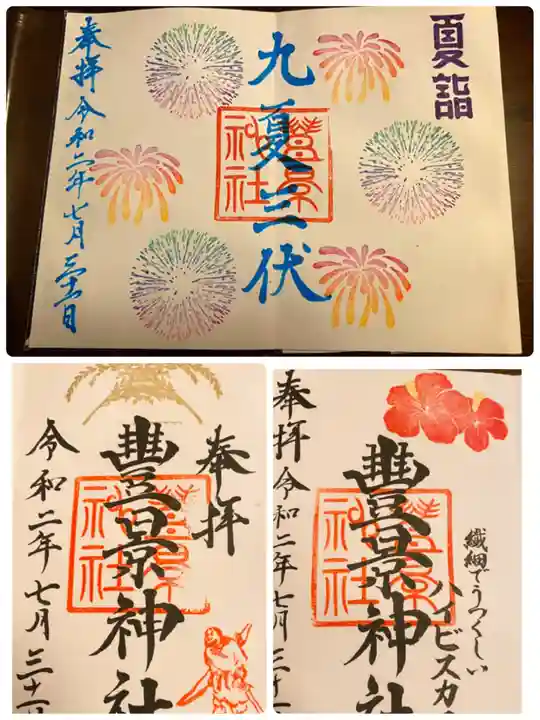 夏詣
九夏三伏
奉拝 令和二年七月三十一日
奉拝
豊景神社
令和二年七月三十一
繊細でうつくしい
ハイビスカ
豊景神社
奉拝 令和二年七月三十一
豊景神社
豊景神社
豊景神社